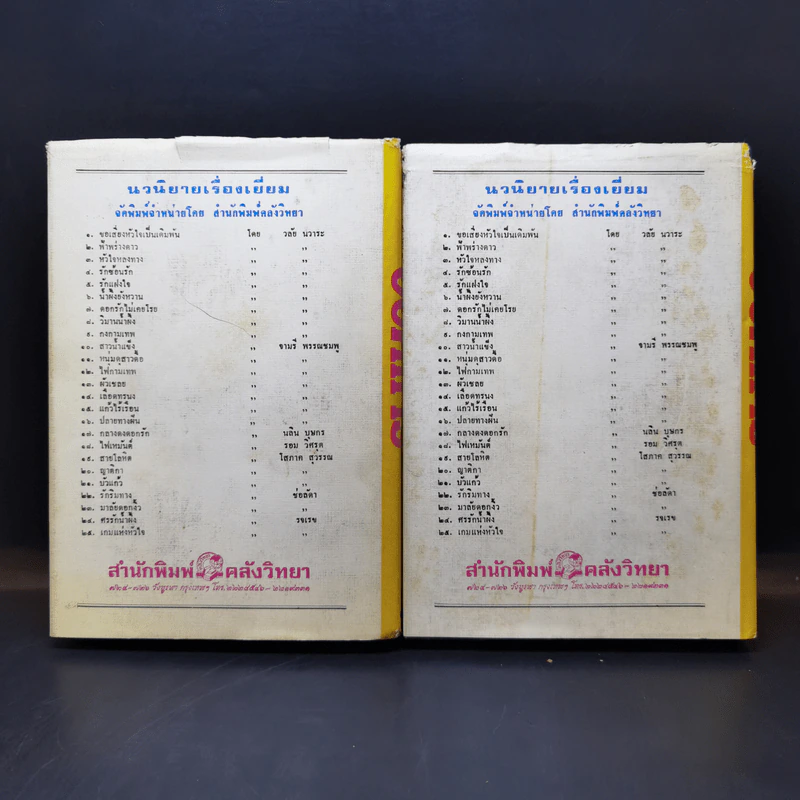 นวนิยายเรื่องเยี่ยม
จัดพิมพ์จำหน่ายโดย สำนักพิมพ์คลังวิทยา
๑. ขอเสี่ยงหัวใจเป็นเดิมพัน โดย วลัย นวาระ
๒. ฟ้าพร่างดาว ,, ,,
๓. หัวใจหลงทาง ,, ,,
๔. รักซ้อนรัก ,, ,,
๕. รักแฝงใจ ,, ,,
๖. น้ำผึ้งยังหวาน ,, ,,
๗. ดอกรักไม่เคยโรย ,, ,,
๘. วิมานน้ำผึ้ง ,, ,,
๙. กงกามเทพ ,, ,,
๑๐. สาวน้ำแข็ง ,, จามรี พรรณชมพู
๑๑. หนุ่มดุสาวดื้อ ,, ,,
๑๒. ไฟกามเทพ ,, ,,
๑๓. ผัวเชลย ,, ,,
๑๔. เลือดทรนง ,, ,,
๑๕. แก้วไร้เรือน ,, ,,
๑๖. ปลายทางฝัน ,, ,,
๑๗. กลางดงดอกรัก ,, นลิน บุษกร
๑๘. ไฟเหมันต์ ,, รอม วิศรุต
๑๙. สายโลหิต ,, โสภาค สุวรรณ
๒๐. ญาติกา ,, ,,
๒๑. บัวแก้ว ,, ,,
๒๒. รักริมทาง ,, ช่อลัดา
๒๓. มาลัยดอกงิ้ว ,, ,,
๒๔. ศรรักน้ำผึ้ง ,, รจเรข
๒๕. เกมแห่งหัวใจ ,, ,,
สำนักพิมพ์ คลังวิทยา
๗๒๔-๗๒๖ วังบูรพา กรุงเทพฯ โทร. ๒๒๒๔๕๔๖-๒๒๑๗๓๓๑
นวนิยายเรื่องเยี่ยม
จัดพิมพ์จำหน่ายโดย สำนักพิมพ์คลังวิทยา
๑. ขอเสี่ยงหัวใจเป็นเดิมพัน โดย วลัย นวาระ
๒. ฟ้าพร่างดาว ,, ,,
๓. หัวใจหลงทาง ,, ,,
๔. รักซ้อนรัก ,, ,,
๕. รักแฝงใจ ,, ,,
๖. น้ำผึ้งยังหวาน ,, ,,
๗. ดอกรักไม่เคยโรย ,, ,,
๘. วิมานน้ำผึ้ง ,, ,,
๙. กงกามเทพ ,, ,,
๑๐. สาวน้ำแข็ง ,, จามรี พรรณชมพู
๑๑. หนุ่มดุสาวดื้อ ,, ,,
๑๒. ไฟกามเทพ ,, ,,
๑๓. ผัวเชลย ,, ,,
๑๔. เลือดทรนง ,, ,,
๑๕. แก้วไร้เรือน ,, ,,
๑๖. ปลายทางฝัน ,, ,,
๑๗. กลางดงดอกรัก ,, นลิน บุษกร
๑๘. ไฟเหมันต์ ,, รอม วิศรุต
๑๙. สายโลหิต ,, โสภาค สุวรรณ
๒๐. ญาติกา ,, ,,
๒๑. บัวแก้ว ,, ,,
๒๒. รักริมทาง ,, ช่อลัดา
๒๓. มาลัยดอกงิ้ว ,, ,,
๒๔. ศรรักน้ำผึ้ง ,, รจเรข
๒๕. เกมแห่งหัวใจ ,, ,,
สำนักพิมพ์ คลังวิทยา
๗๒๔-๗๒๖ วังบูรพา กรุงเทพฯ โทร. ๒๒๒๔๕๔๖-๒๒๑๗๓๓๑